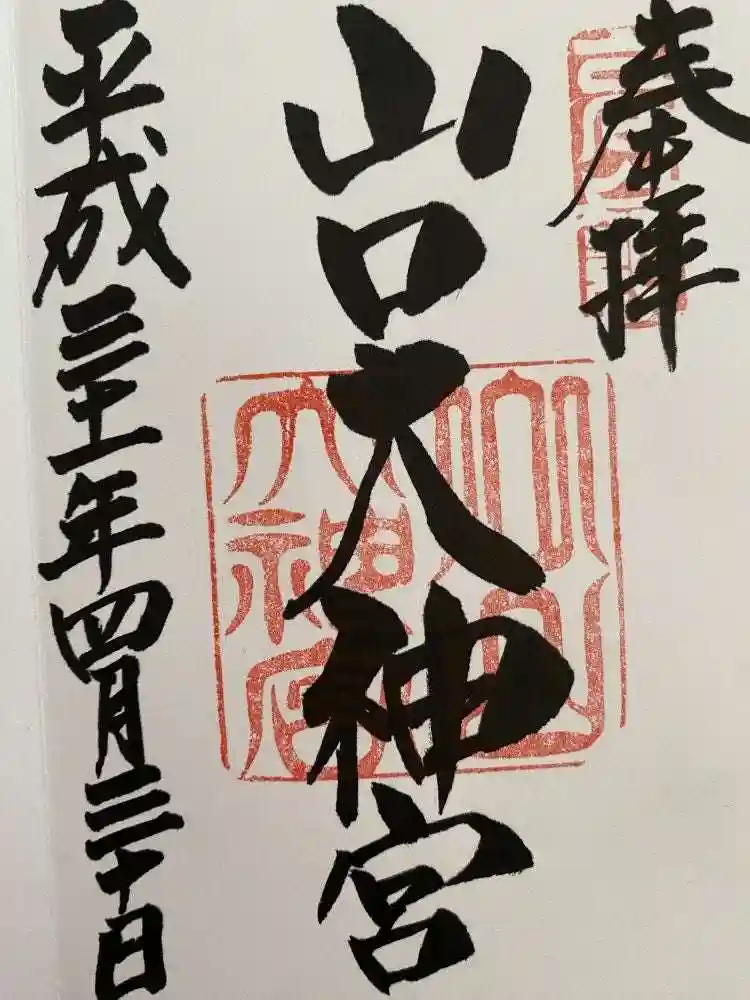 奉拝
山口大神宮
平成三十一年四月三十日
山口
大神宮